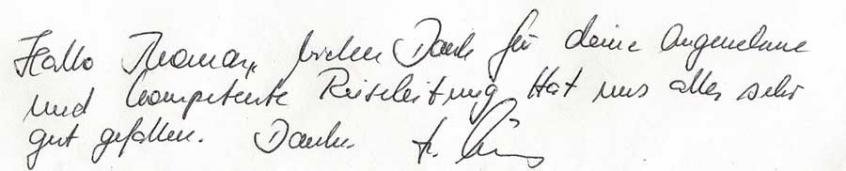 Hallo Thomas, vielen Dank für deine angenehme
und kompetente Reiseleitung Hat uns alles sehr
gut gefallen. Danke